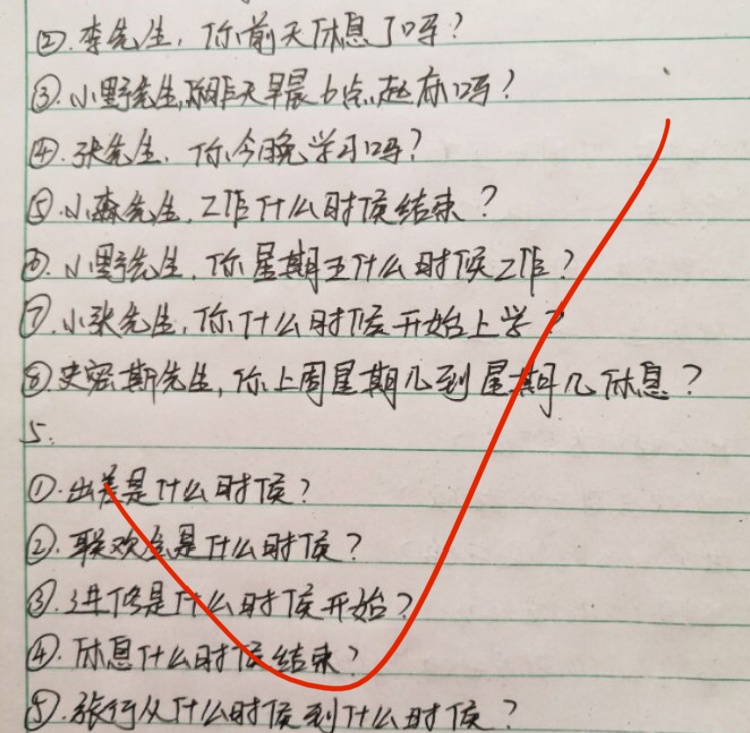 ②. 李先生,你前天休息了吗?
③. 小野先生,你昨天早晨6点起床吗?
④. 张先生,你今晚学习吗?
⑤. 小森先生,工作什么时候结束?
⑥. 小野先生,你星期五什么时候工作?
⑦. 小张先生,你什么时候开始上学?
⑧. 史密斯先生,你上周星期几到星期几休息?
5.
①. 出差是什么时候?
②. 联欢会是什么时候?
③. 进修是什么时候开始?
④. 休息什么时候结束?
⑤. 旅行从什么时候到什么时候?